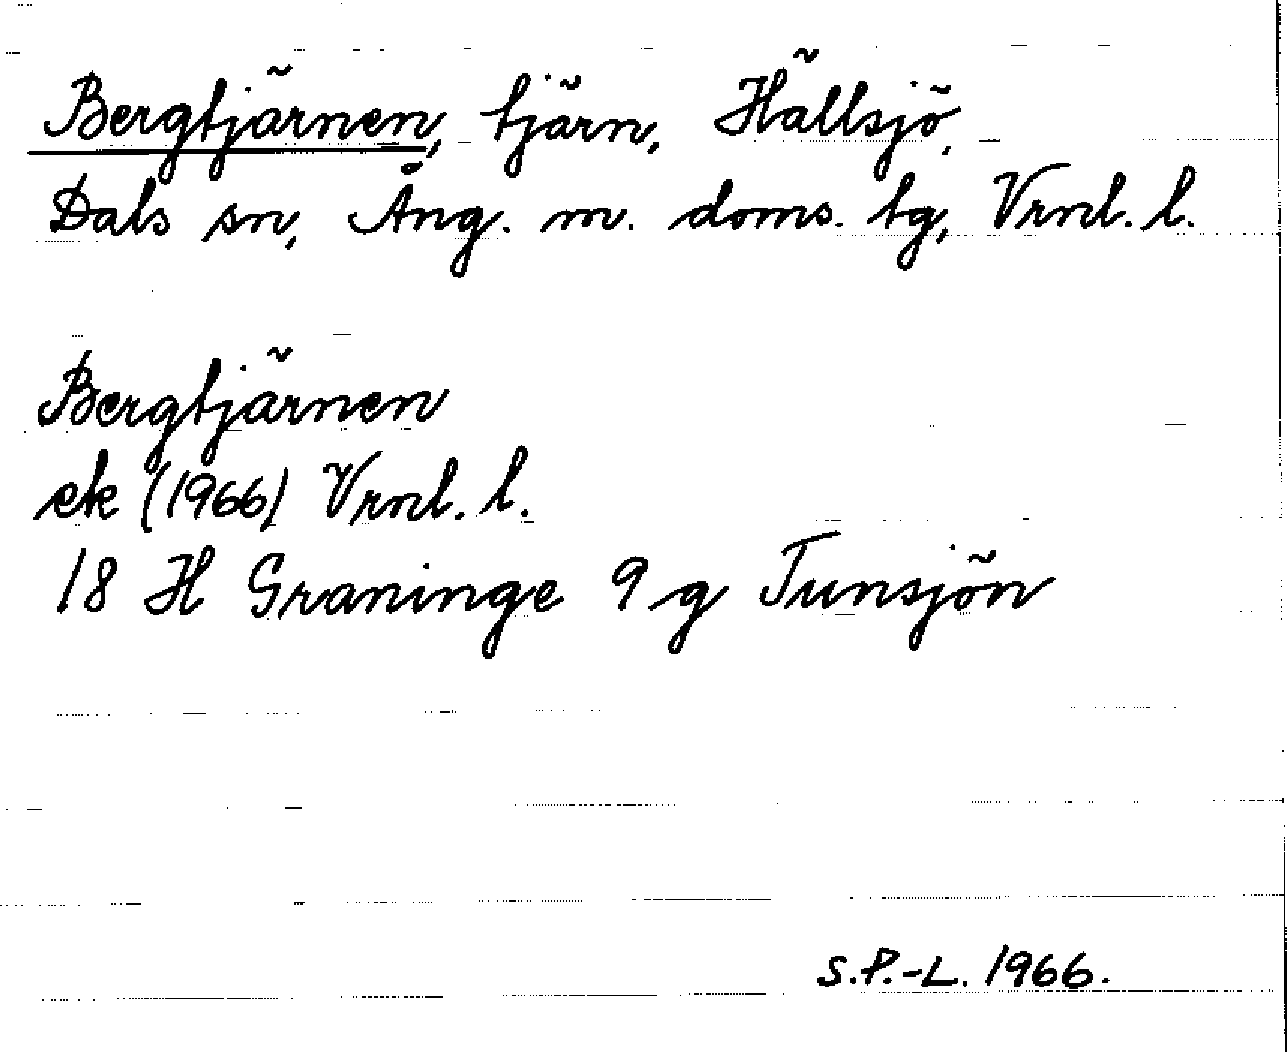 Bergtjärnen, tjärn, Hällsjö,
Dals sn, Ång. m. doms. tg, Vrnl. l.
Bergtjärnen
ek (1966) Vrnl. l.
18 H Graninge 9 g Tunsjön
S.P.-L. 1966.